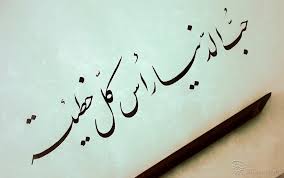 حبّ الدنيا رأس كلّ خطيئة